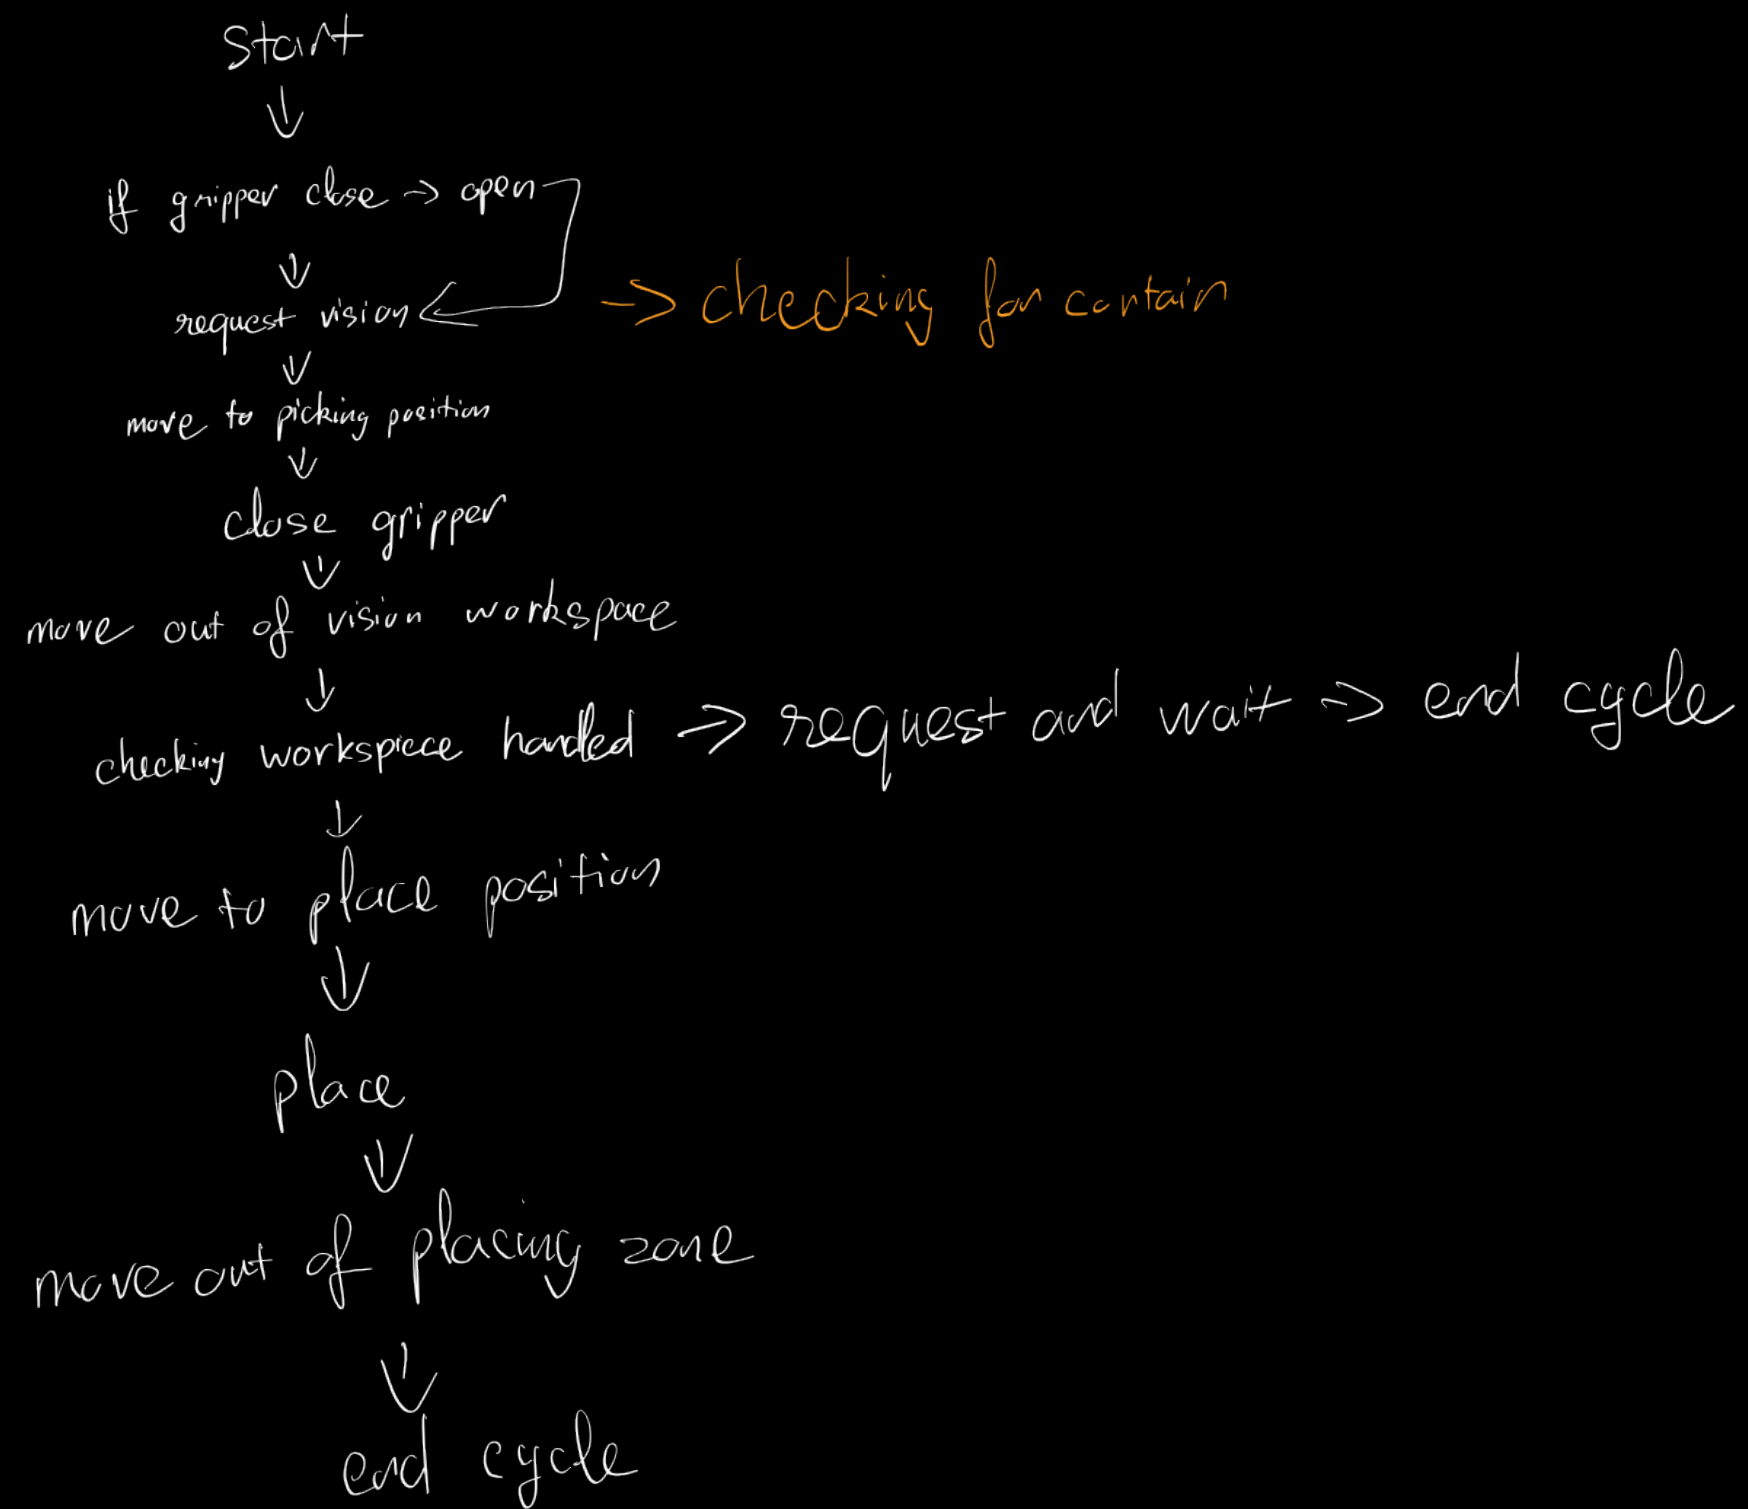 start
↓
if gripper close → open
↓
request vision → checking for contain
↓
move to picking position
↓
close gripper
↓
move out of vision workspace
↓
checking workspiece handled → request and wait → end cycle
↓
move to place position
↓
place
↓
move out of placing zone
↓
end cycle